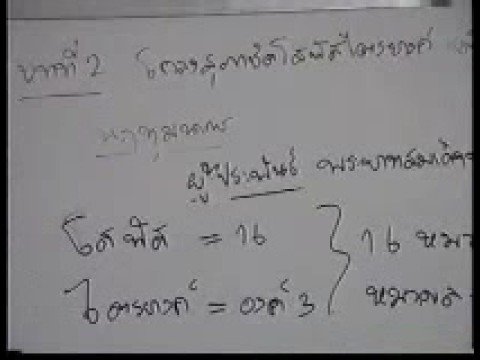 บทที่ 2 โคลงสุภาษิตโสฬสไตรยางค์
ผู้ประพันธ์ พระบาทสมเด็จ
โสฬส = 16 } 16 หมว
ไตรยางค์ = องค์ 3 หมวดล